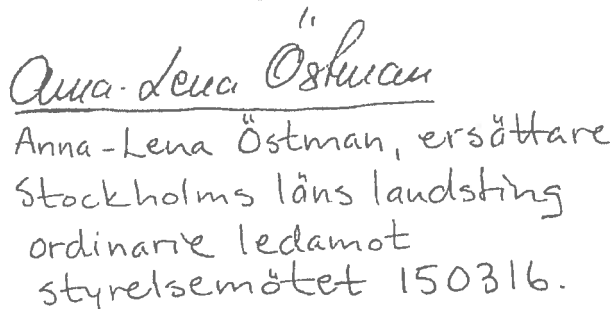 Anna-Lena Östman
Anna-Lena Östman, ersättare
Stockholms läns landsting
ordinarie ledamot
styrelsemötet 150316.